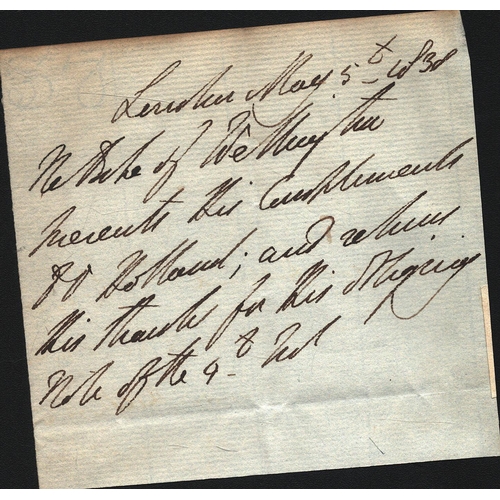 London May 5th 1838
The Duke of Wellington
presents His Compliments
to Dr Holland; and returns
His thanks for His obliging
Note of the 4th Inst